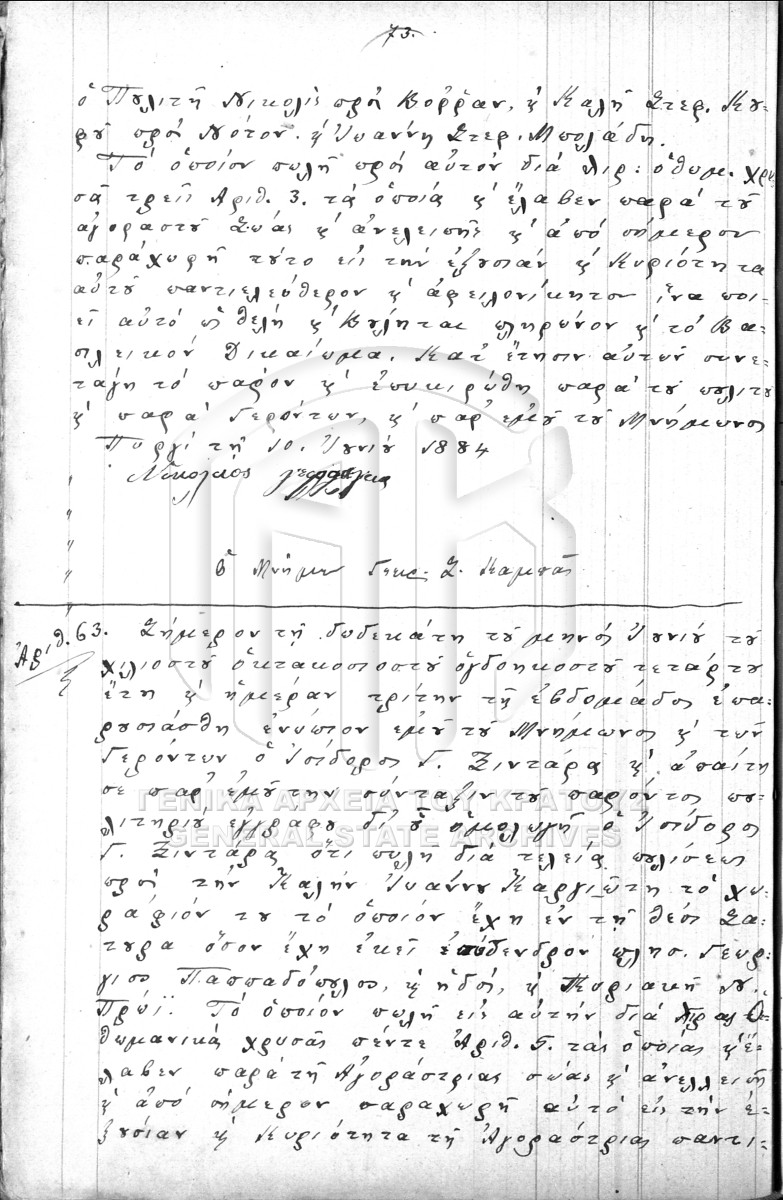 73.
ὁ Πωλιτῆ Νικολὶς πρὸς Βοῤῥᾶν, κ Καλῆ Στερ. Κου-
ροῦ πρὸς Νότον. κ Ἰωάννη Στερ. Μπολάδη.
Τὸ ὁποίον πωλῆ πρὸς αὐτὸν διὰ λιρ: ὀθωμ. χρυ
σᾶ τρεῖς Αριθ. 3. τὰ ὁποία κ' ἔλαβεν παρὰ τοῦ
ἀγοραστοῦ Σώας κ' ἀνελειπῆς κ' ἀπὸ σήμερον
παράχωρῆ τοῦτο εἰς τὴν ἐξουσίαν κ' Κυριότητα
αὐτοῦ παντιελεύθερον κ' ἀφειλονίκητον ἵνα ποι-
εῖ αὐτό ὡς θελη κ' Βούληται πληρώνον κ' τὸ Βα-
σιλεικόν Δικαίωμα. Κατ' ἔτησιν αὐτῶν συνε-
τάγη τὸ παρὸν κ' ἐπυκιρώθη παρὰ του πωλιτοῦ
κ' παρὰ Γερόντων, κ' παρ' ἐμοῦ τοῦ Μνήμωνος
Πυργί τῆ 10. Ἰουνίου 1884
Νικολαιος
ὁ Μνήμων Γεωρ. Σ. Καμπᾶς
Ἀριθ. 63. Σήμερον τῆ δωδεκάτη τοῦ μηνός Ἰουνίου τοῦ
χιλιοστοῦ ὀκτακοσιοστοῦ ὀγδοηκοστοῦ τετάρτου
ἔτη κ' ἡμέραν τρίτην τῆ ἑβδομάδος ἐπα-
ρουσιάσθη ἐνώπιον εμοῦ τοῦ Μνήμωνος κ' τῶν
Γερόντων ὁ Ἰσίδορος Γ. Ζιντάρας κ' ἀπαίτη
σε παρ' ἐμοῦ την σύνταξιν τοῦ παρόντος πω-
λιτηριοῦ ἐγγραφου δι' οὗ ὁμολωγῆ ὁ Ἰσίδορος
Γ. Ζιντάρας ὅτι πωλη διὰ τελείας πωλίσεως
πρὸς τὴν Καλὴν Ἰωάννου Καργιώτη τὸ χω-
ράφιόν του τὸ ὁποίον ἔχη ἐν τῆ θέσι Σα-
τυρα ὅσον ἔχη ἐκεῖ ἐπόδενδρον πλησ. Γεωρ-
γιος Παππαδόπουλος, κ ἡ ὁδὸς, κ Κυριακῆ Ν.
Πρωΐ. Τὸ ὁποίον πωλῆ εις αὐτὴν διὰ λίρας Ὀ-
θωμανικὰς χρυσᾶς πέντε Ἀριθ. 5. τὰς ὁποίας κ' ἔ-
λαβεν παρὰ τῆ Ἀγοράστριας σώας κ' ἀνελλειπῆ
κ' ἀπὸ σήμερον παραχωρῆ αυτὸ εἰς τὴν ἐ-
ξουσίαν κ Κυριότητα τῆ Ἀγοράστριας παντι-
ΓΕΝΙΚΑ ΑΡΧΕΙΑ ΤΟΥ ΚΡΑΤΟΥΣ
GENERAL STATE ARCHIVES